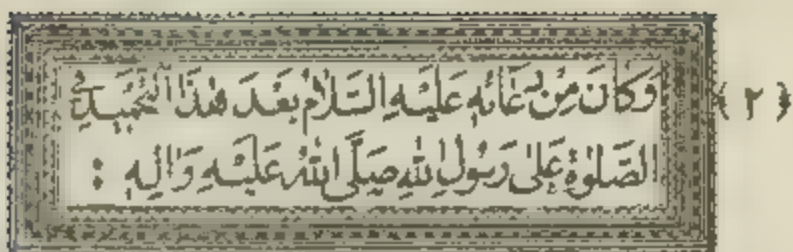 ﴿٢﴾
وَكَانَ مِنْ دُعَائِهِ عَلَيْهِ السَّلَامُ بَعْدَ هٰذَا التَّحْمِيْدِ فِي
الصَّلٰوةِ عَلٰى رَسُوْلِ اللهِ صَلَّى اللهُ عَلَيْهِ وَاٰلِهٖ :